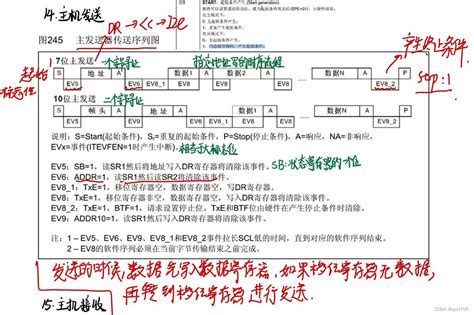 14.主机发送
DR→
START: 起始条件产生 (Start generation)
在主模式下:
0: 无起始条件产生;
在从模式下:
0: 无起始条件产生;
产生终止条件
图245 主发送器传送序列图
7位主发送
起始
S 地址 A 数据1 A 数据2 A 数据N A P
EV5 EV6 EV8_1 EV8 EV8 EV8 EV8_2
stop:1
10位主发送
S 帧头 A 地址 A 数据1 A 数据N A P
EV5 EV9 EV6 EV8_1 EV8 EV8 EV8_2
说明:S=Start(起始条件), Sr=重复的起始条件, P=Stop(停止条件), A=响应, NA=非响应,
EVx=事件(ITEVFEN=1时产生中断).
EV5:SB=1,读SR1然后将地址写入DR寄存器将清除该事件。
SB:状态寄存器的0位
EV6:ADDR=1,读SR1然后读SR2将清除该事件。
EV8_1:TxE=1,移位寄存器空,数据寄存器空,写DR寄存器。
EV8:TxE=1,移位寄存器非空,数据寄存器空,写入DR寄存器将清除该事件。
EV8_2:TxE=1, BTF=1,请求设置停止位。TxE和BTF位由硬件在产生停止条件时清除。
EV9:ADDR10=1,读SR1然后写入DR寄存器将清除该事件。
注:1－EV5、EV6、EV9、EV8_1和EV8_2事件拉长SCL低的时间,直到对应的软件序列结束。
2－EV8的软件序列必须在当前字节传输结束之前完成。
发送的时候,数据先写入数据寄存器,如果移位寄存器无数据,
再转到移位寄存器进行发送.
15.主机接收